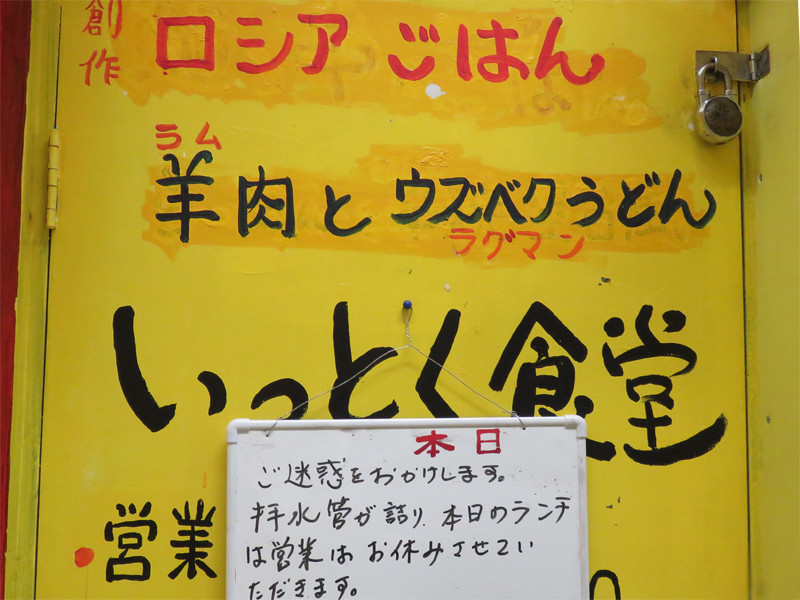 創作
ロシアごはん
ラム
羊肉とウズベクうどん
ラグマン
いっとく食堂
本日
ご迷惑をおかけします。
排水管が詰り、本日のランチ
は営業はお休みさせてい
ただきます。
・営業